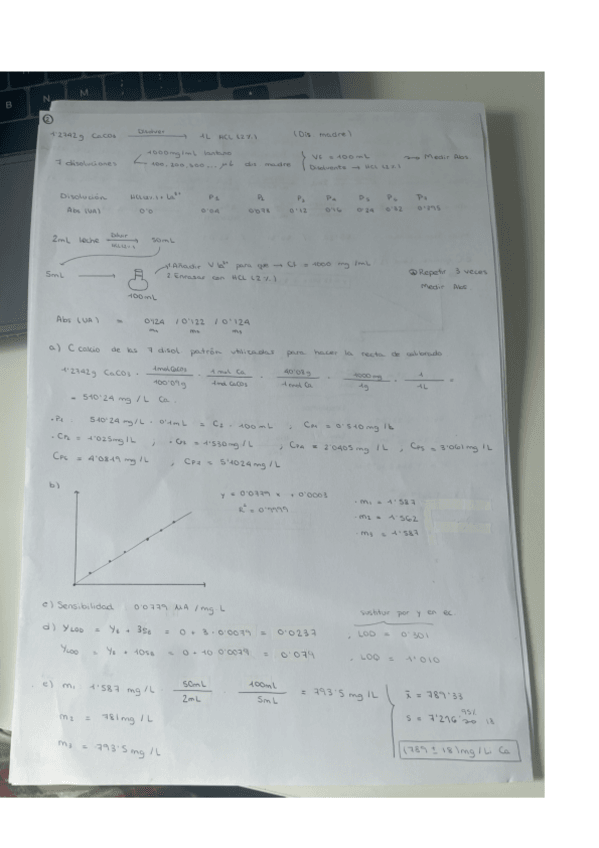 B N M
②
1'2742g CaCO3 Disolver → 1L HCl (2%) (Dis madre)
7 disoluciones 1000mg/mL lantano Vt = 100mL → Medir Abs
100, 200, 300... μL dis madre Disolvente → HCl (2%)
Disolución P1 P2 P3 P4 P5 P6 P7
Abs (UA) 0'0 0'04 0'078 0'12 0'16 0'24 0'32 0'395
2mL leche Diluir → 50mL
5mL 1. Añadir V La3+ para que → Cf = 1000 mg/mL
2. Enrasar con HCl (2%) Repetir 3 veces
100mL Medir Abs
Abs (UA) = 0'124 / 0'122 / 0'124
m1 m2 m3
a) C calcio de las 7 disol patrón utilizadas para hacer la recta de calibrado
1'2742g CaCO3 · 1mol CaCO3 / 100'09g · 1 mol Ca / 1mol CaCO3 · 40'08g / 1mol Ca · 1000mg / 1g · 1 / 1L =
= 510'24 mg/L Ca.
· P1 510'24 mg/L · 0'1mL = C2 · 100mL ; CP1 = 0'510 mg/L
· CP2 = 1'025mg/L ; · CP3 = 1'530mg/L , CP4 = 2'0405 mg/L , CP5 = 3'061mg/L
CP6 = 4'0819 mg/L , CP7 = 5'1024mg/L
b) y = 0'0779 x + 0'0003 · m1 = 1'587
R² = 0'9999 · m2 = 1'562
· m3 = 1'587
c) Sensibilidad 0'0779 UA/mg L sustituir por y en ec.
d) YLOD = YB + 3SB = 0 + 3 · 0'0079 = 0'0237 , LOD = 0'301
YLOQ = YB + 10SB = 0 + 10 0'0079 = 0'079 , LOD = 1'010
e) m1 1'587 mg/L · 50mL / 2mL · 100mL / 5mL = 793'5 mg/L x̄ = 789'33
m2 = 781mg/L S = 7'216 95% → 18
m3 = 793'5mg/L (789 ± 18)mg/L Ca